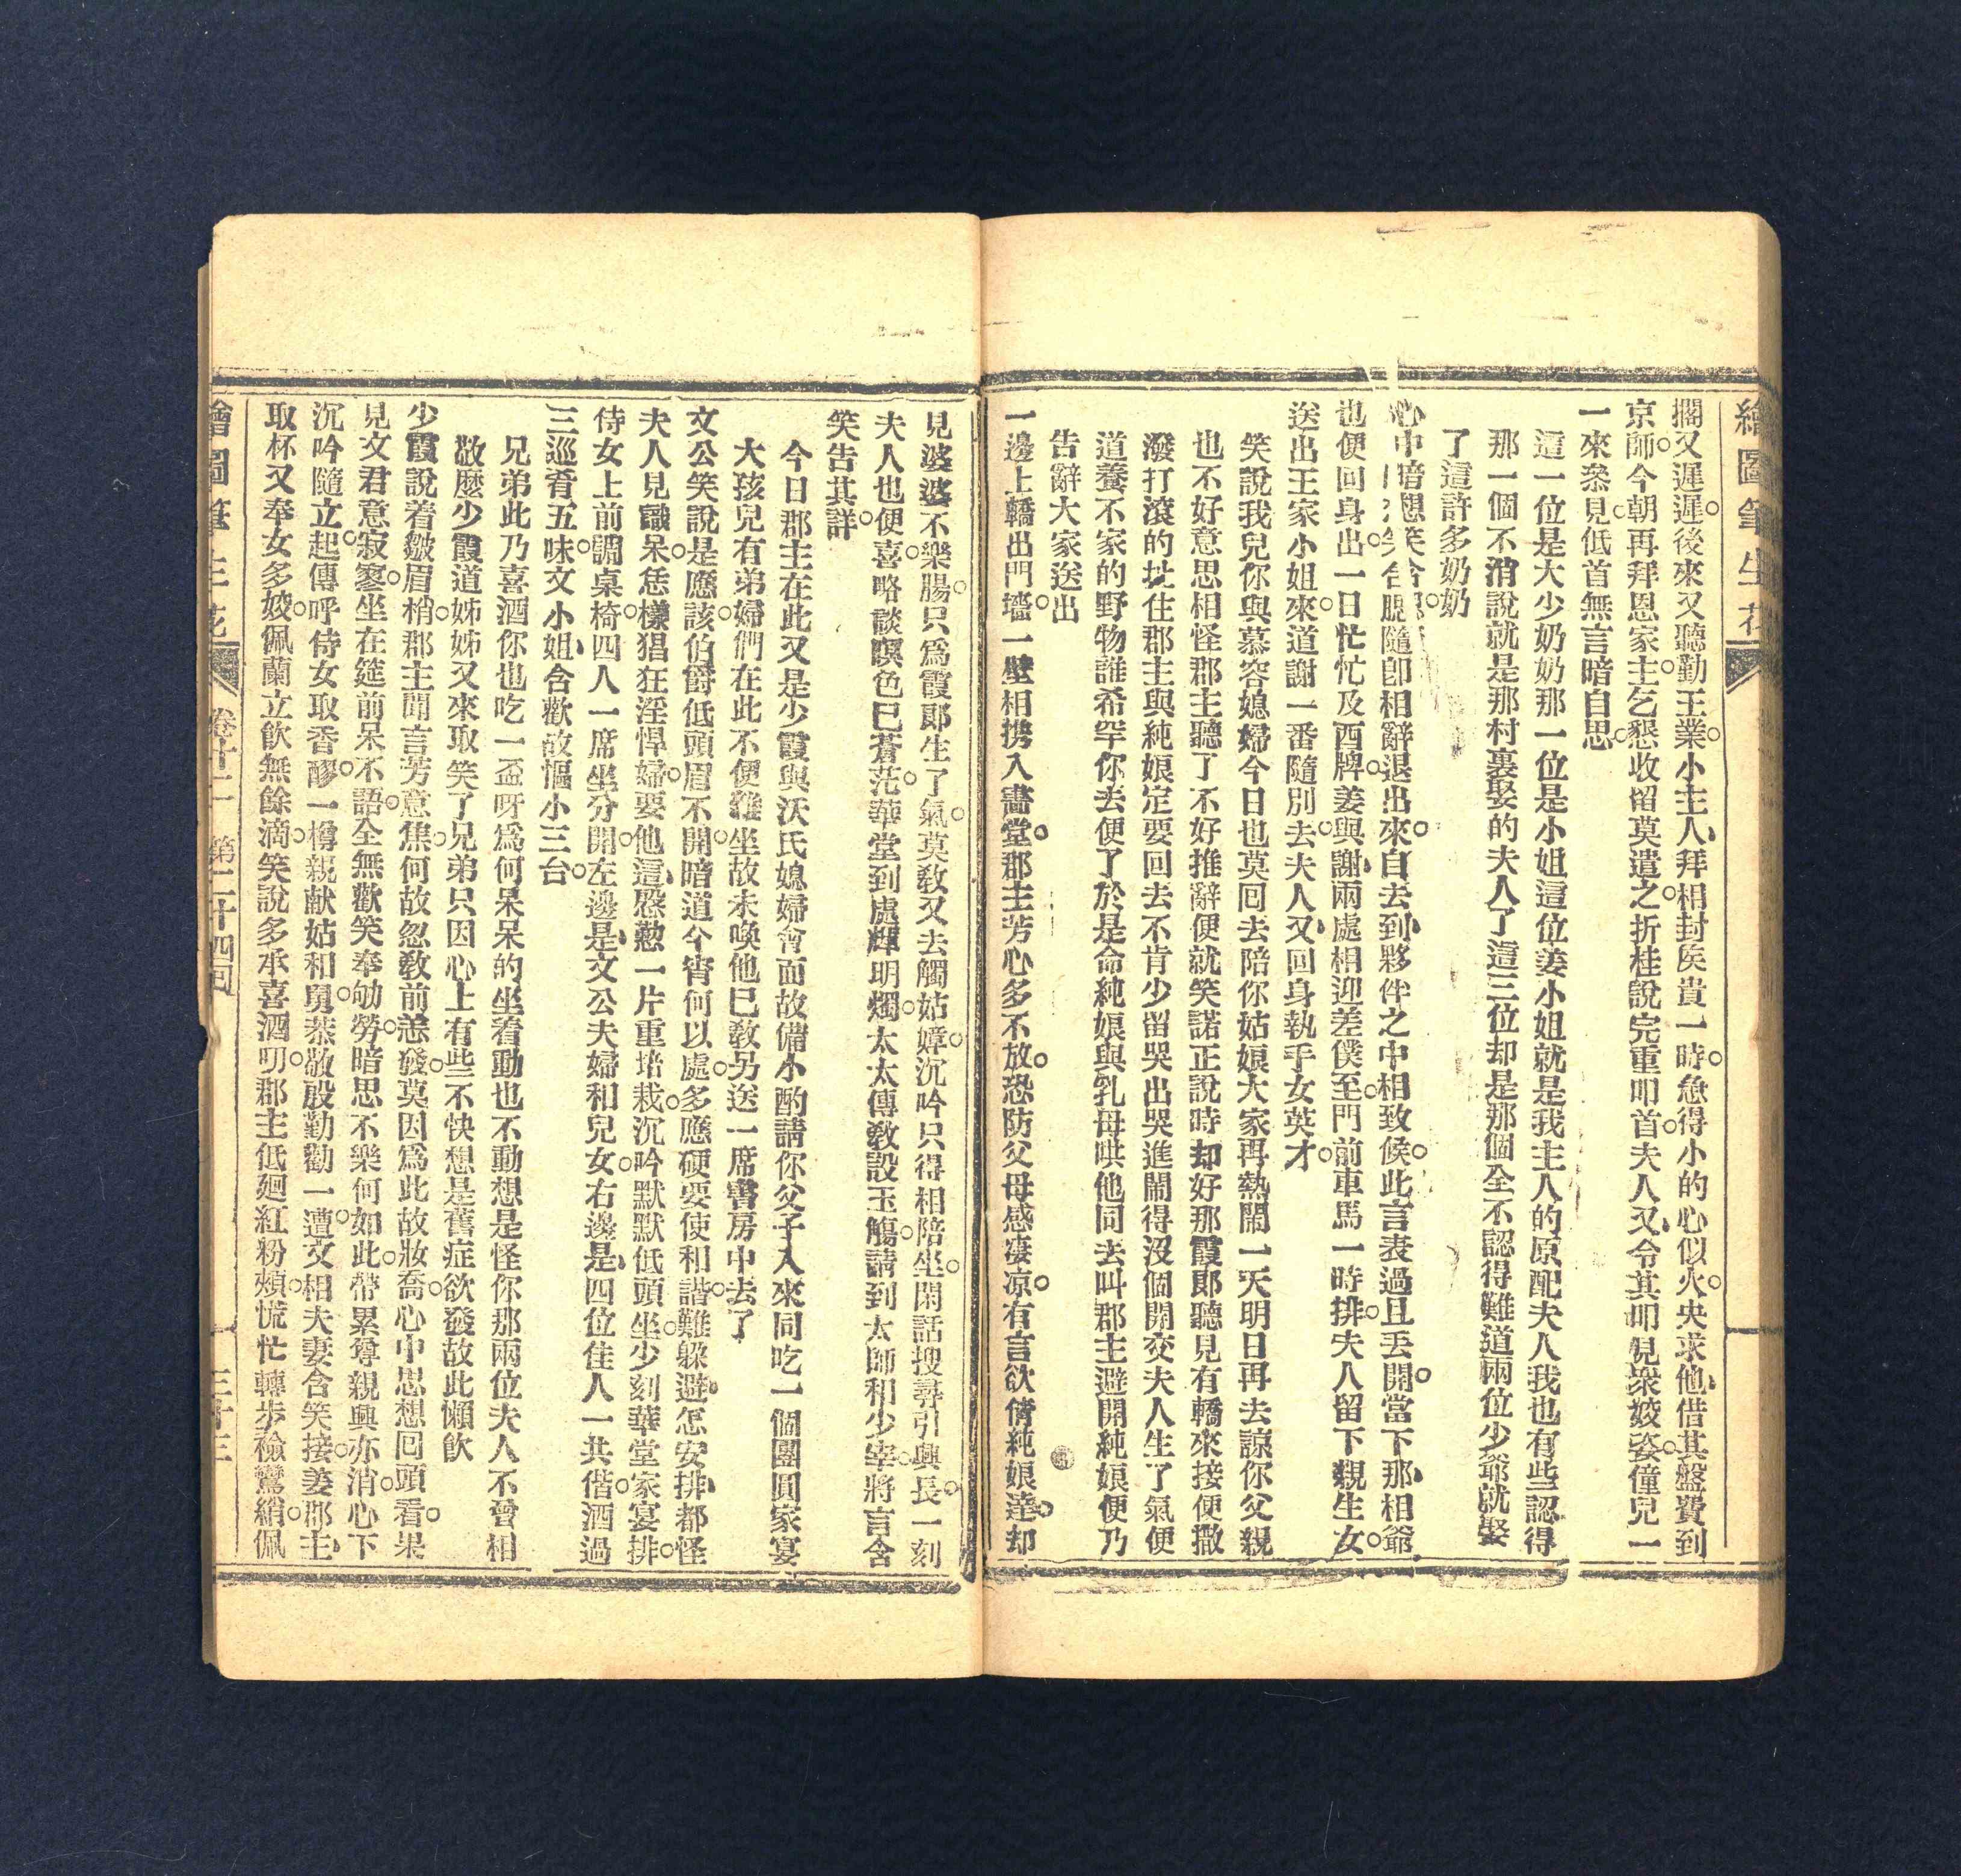 繪圖筆生花
擱又遲遲○後來又聽勤王業○小主人拜相封矦貴一時○急得小的心似火○央求他借其盤費到
京師○今朝再拜恩家主○乞懇收留莫遣之○折桂說完重叩首○夫人又令其叩見衆姣姿○僮兒一
一來叅見○低首無言暗自思○
這一位是大少奶奶那一位是小姐這位姜小姐就是我主人的原配夫人我也有些認得
那一個不消說就是那村裏娶的夫人了這三位却是那個全不認得難道兩位少爺就娶
了這許多奶奶
心中暗想笑 隨卽相辭退出來○自去到夥伴之中相致候○此言表過且丟開○當下那相爺
也便回身出○一日忙忙及酉牌○姜與謝兩處相迎差僕至○門前車馬一時排○夫人留下親生女○
送出王家小姐來○道謝一番隨別去○夫人又回身執手女英才○
笑說我兒你與慕容媳婦今日也莫回去陪你姑娘大家再熱鬧一天明日再去諒你父親
也不好意思相怪郡主聽了不好推辭便就笑諾正說時却好那霞郞聽見有轎來接便撒
潑打滾的扯住郡主與純娘定要回去不肯少留哭出哭進鬧得沒個開交夫人生了氣便
道養不家的野物誰希罕你去便了於是命純娘與乳母哄他同去叫郡主避開純娘便乃
告辭大家送出
一邊上轎出門墻○一壁相携入畫堂○郡主芳心多不放○恐防父母感凄凉○有言欲倩純娘達○却
見婆婆不樂腸○只爲霞郞生了氣○莫敎又去觸姑嫜○沉吟只得相陪坐○閑話搜尋引興長○一刻
夫人也便喜○略談暝色已蒼茫○華堂到處輝明燭○太太傳敎設玉觴○請到太師和少宰○將言含
笑告其詳○
今日郡主在此又是少霞與沃氏媳婦會面故備小酌請你父子入來同吃一個團圓家宴
大孩兒有弟婦們在此不便雜坐故未喚他已敎另送一席書房中去了
文公笑說是應該○伯爵低頭眉不開○暗道今宵何以處○多應硬要使和諧○難躲避怎安排○都怪
夫人見識呆○恁樣猖狂淫悍婦○要他這慇懃一片重培栽○沉吟默默低頭坐○少刻華堂家宴排○
侍女上前調桌椅○四人一席坐分開○左邊是文公夫婦和兒女○右邊是四位佳人一共偕○酒過
三巡肴五味○文小姐含歡故慪小三台○
兄弟此乃喜酒你也吃一盃呀爲何呆呆的坐着動也不動想是怪你那兩位夫人不曾相
敬麼少霞道姊姊又來取笑了兄弟只因心上有些不快想是舊症欲發故此懶飮
少霞說着皺眉梢○郡主聞言芳意焦○何故忽敎前恙發○莫因爲此故妝喬○心中思想囘頭看○果
見文君意寂寥○坐在筵前呆不語○全無歡笑奉劬勞○暗思不樂何如此○帶累尊親興亦消○心下
沉吟隨立起○傳呼侍女取香醪○一樽親献姑和舅○恭敬殷勤勸一遭○文相夫妻含笑接○姜郡主
取杯又奉女多姣○佩蘭立飮無餘滴○笑說多承喜酒叨○郡主低廻紅粉頰○慌忙轉步檢鸞綃○佩
繪圖筆生花 卷十二 第二十四回 三十三